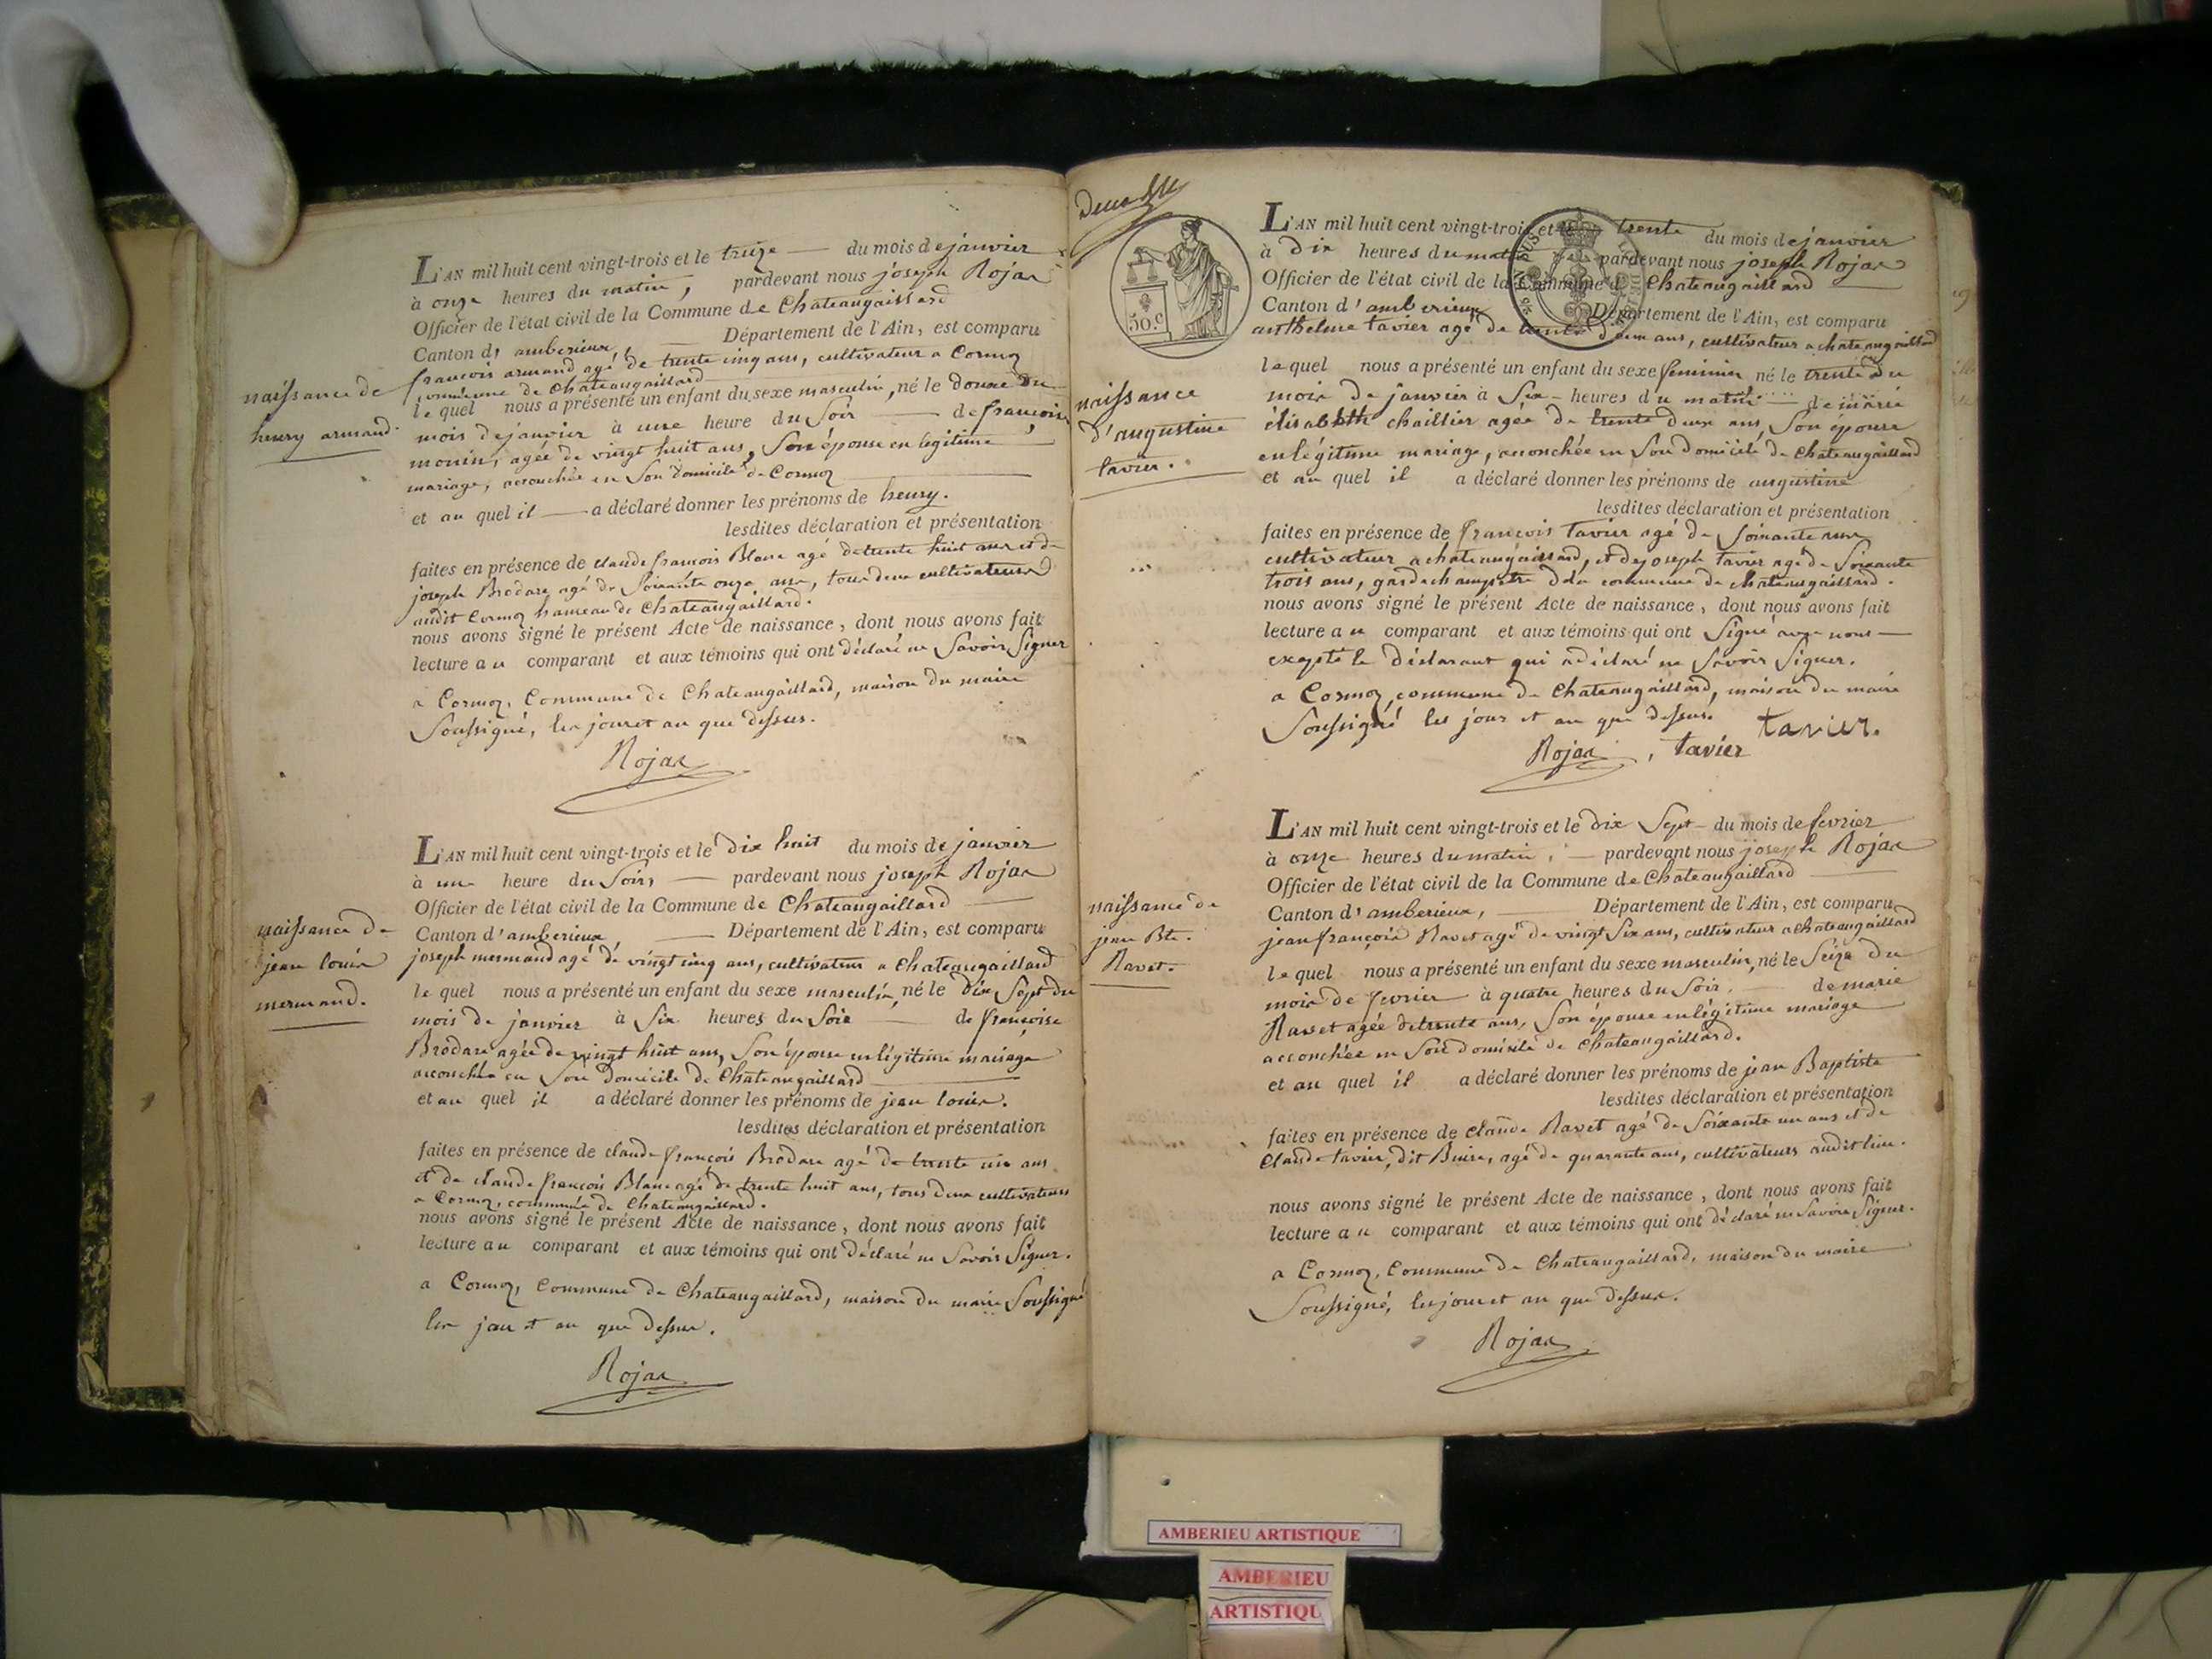 naissance de
henry armand.
L'AN mil huit cent vingt-trois et le treize du mois de janvier
à onze heures du matin, pardevant nous joseph Rojat
Officier de l'état civil de la Commune de Chateaugaillard
Canton d'amberieux, Département de l'Ain, est comparu
françois armand agé de trente cinq ans, cultivateur a Cormoz
commune de Chateaugaillard
lequel nous a présenté un enfant du sexe masculin, né le douze du
mois de janvier à une heure du Soir de françoise
monin, agée de vingt huit ans, Son épouse en legitime
mariage, accouchée en Son domicile de Cormoz
et au quel il a déclaré donner les prénoms de henry.
lesdites déclaration et présentation
faites en présence de claude françois Blanc agé de trente huit ans et de
joseph Brodare agé de Soixante onze ans, tous deux cultivateurs
audit Cormoz hameau de Chateaugaillard.
nous avons signé le présent Acte de naissance, dont nous avons fait
lecture au comparant et aux témoins qui ont déclaré ne Savoir Signer
a Cormoz, Commune de Chateaugaillard, maison du maire
Soussigné, les jour et an que dessus.
Rojat
naissance de
jean louis
mermand.
L'AN mil huit cent vingt-trois et le dix huit du mois de janvier
à une heure du Soir, pardevant nous joseph Rojat
Officier de l'état civil de la Commune de Chateaugaillard
Canton d'amberieux Département de l'Ain, est comparu
joseph mermand agé de vingt cinq ans, cultivateur a Chateaugaillard
lequel nous a présenté un enfant du sexe masculin, né le dix Sept du
mois de janvier à Six heures du Soir de françoise
Brodare agée de vingt huit ans, Son épouse en légitime mariage
accouchée en Son domicile de Chateaugaillard
et au quel il a déclaré donner les prénoms de jean louis.
lesdites déclaration et présentation
faites en présence de claude françois Brodare agé de trente un ans
et de claude françois Blanc agé de trente huit ans, tous deux cultivateurs
a Cormoz, commune de Chateaugaillard.
nous avons signé le présent Acte de naissance, dont nous avons fait
lecture au comparant et aux témoins qui ont déclaré ne Savoir Signer.
a Cormoz, Commune de Chateaugaillard, maison du maire Soussigné
les jour et an que dessus.
Rojat
50.c
naissance
d'augustine
tavier.
L'AN mil huit cent vingt-trois et le trente du mois de janvier
à dix heures du matin pardevant nous joseph Rojat
Officier de l'état civil de la Commune de Chateaugaillard
Canton d'amberieux Département de l'Ain, est comparu
anthelme tavier agé de trente deux ans, cultivateur a chateaugaillard
lequel nous a présenté un enfant du sexe feminin né le trente du
mois de janvier à Six heures du matin de marie
élisabeth chaillier agée de trente deux ans, Son épouse
en légitime mariage, accouchée en Son domicile de Chateaugaillard
et au quel il a déclaré donner les prénoms de augustine
lesdites déclaration et présentation
faites en présence de françois tavier agé de Soixante ans
cultivateur a chateaugaillard, et de joseph tavier agé de Soixante
trois ans, garde champêtre de la commune de chateaugaillard.
nous avons signé le présent Acte de naissance, dont nous avons fait
lecture au comparant et aux témoins qui ont Signé avec nous
excepté le déclarant qui a déclaré ne Savoir Signer.
a Cormoz, commune de Chateaugaillard, maison du maire
Soussigné les jour et an que dessus.
tavier.
Rojat, tavier
naissance de
jean Bte.
Ravet.
L'AN mil huit cent vingt-trois et le dix Sept du mois de fevrier
à onze heures du matin, pardevant nous joseph Rojat
Officier de l'état civil de la Commune de Chateaugaillard
Canton d'amberieux, Département de l'Ain, est comparu
jean françois Ravet agé de vingt Six ans, cultivateur a chateaugaillard
lequel nous a présenté un enfant du sexe masculin, né le Seize du
mois de fevrier à quatre heures du Soir, de marie
Ravet agée de trente ans, Son épouse en légitime mariage
accouchée en Son domicile de Chateaugaillard.
et au quel il a déclaré donner les prénoms de jean Baptiste
lesdites déclaration et présentation
faites en présence de claude Ravet agé de Soixante un ans et de
Claude tavier, dit Buire, agé de quarante ans, cultivateurs audit lieu.
nous avons signé le présent Acte de naissance, dont nous avons fait
lecture au comparant et aux témoins qui ont déclaré ne Savoir Signer.
a Cormoz, Commune de Chateaugaillard, maison du maire
Soussigné, les jour et an que dessus.
Rojat
AMBERIEU ARTISTIQUE
AMBERIEU
ARTISTIQU